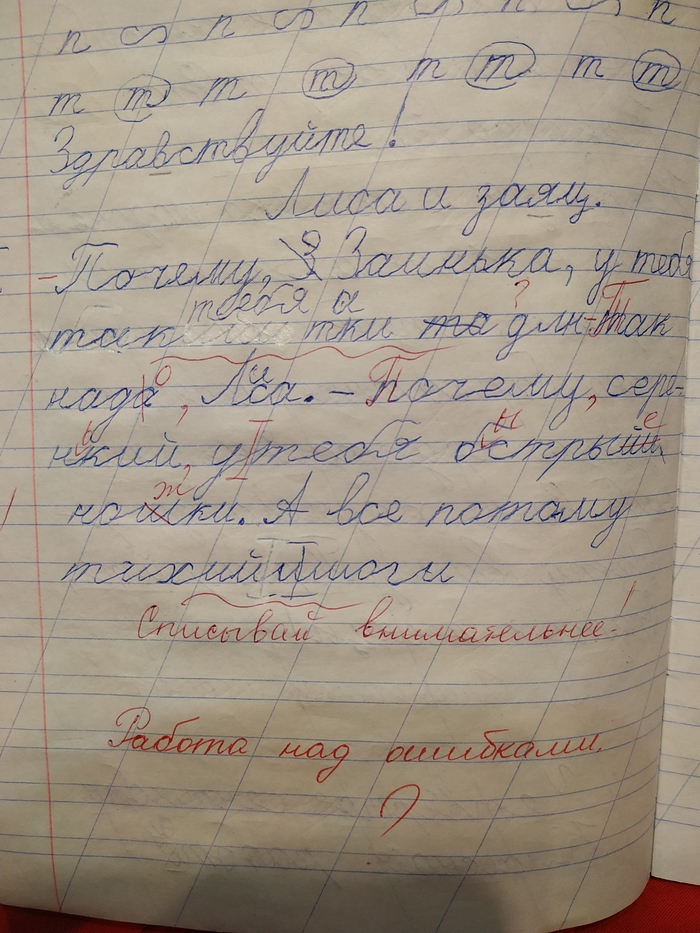 п п п п
т т т т т т т т
Здравствуйте!
Лиса и заяц.
- Почему, З Заинька, у тебя
тебя а ? Т
так тки та длн - Так
о и
нада, Лса. - Почему, сере-
ь ы е
нкий, у тебя бстрый
ж
ношки. А все потому
тихий и ноги
Списывай внимательнее!
Работа над ошибками.
?